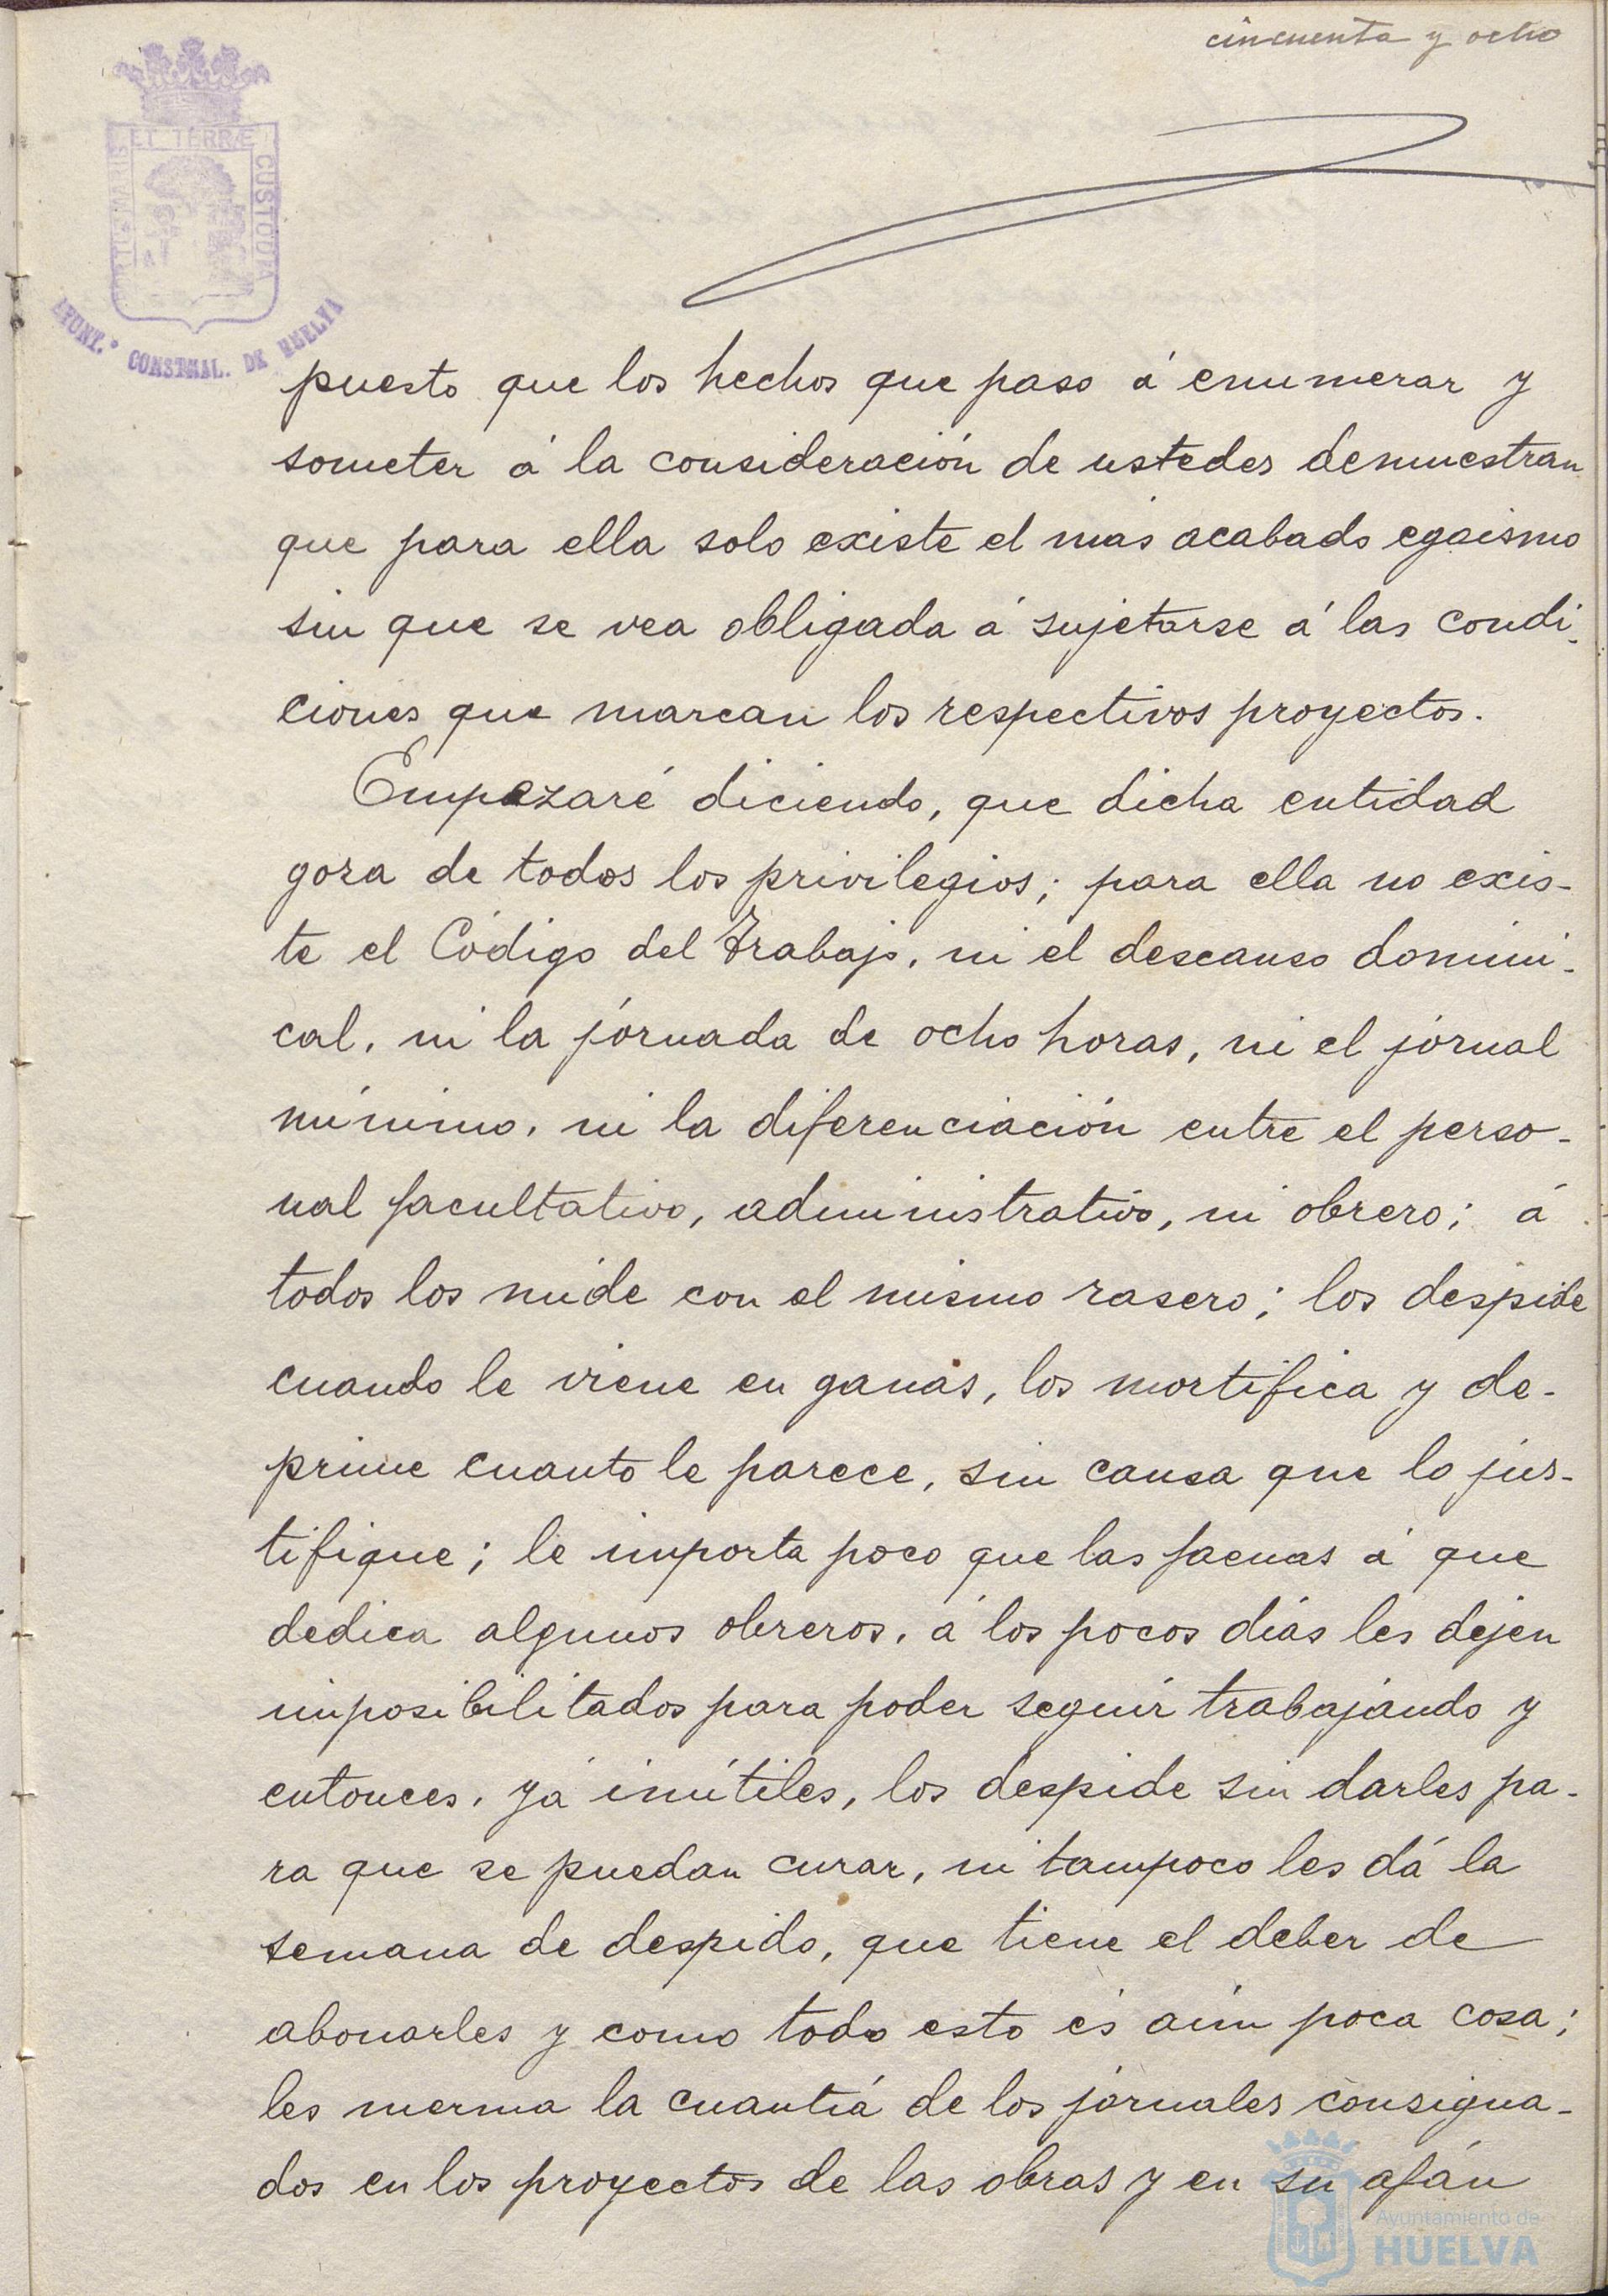 cincuenta y ocho
PORTUS MARIS ET TERRÆ CUSTODIA
AYUNT.º CONSTNAL. DE HUELVA
puesto que los hechos que paso á enumerar y
someter á la consideración de ustedes demuestran
que para ella solo existe el más acabado egoismo
sin que se vea obligada á sujetarse á las condi-
ciones que marcan los respectivos proyectos.
Empezaré diciendo, que dicha entidad
goza de todos los privilegios; para ella no exis-
te el Código del Trabajo, ni el descanso domini-
cal, ni la jornada de ocho horas, ni el jornal
mínimo, ni la diferenciación entre el perso-
nal facultativo, administrativo, ni obrero; á
todos los mide con el mismo rasero; los despide
cuando le viene en ganas, los mortifica y de-
prime cuanto le parece, sin causa que lo jus-
tifique; le importa poco que las faenas á que
dedica algunos obreros, á los pocos días les dejen
imposibilitados para poder seguir trabajando y
entonces, yá inútiles, los despide sin darles pa-
ra que se puedan curar, ni tampoco les dá la
semana de despido, que tiene el deber de
abonarles y como todo esto és aún poca cosa;
les merma la cuantía de los jornales consigna-
dos en los proyectos de las obras y en su afán
Ayuntamiento de
HUELVA